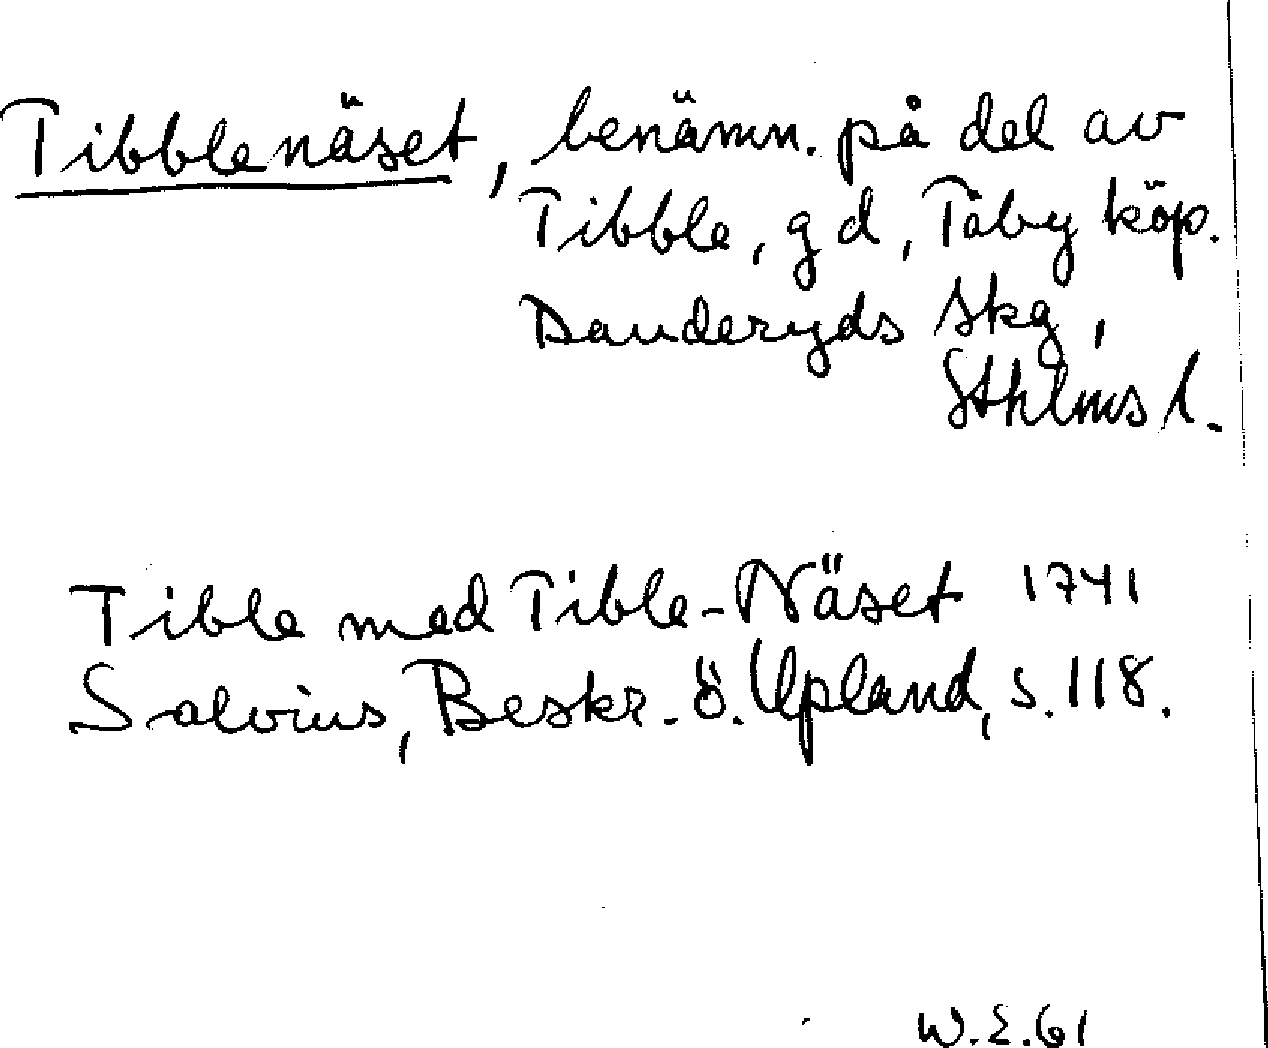 Tibblenäset, benämn. på del av
Tibble, gd, Täby köp.
Danderyds skg,
Sthlms l.
Tible med Tible-Näset 1741
Salvius, Beskr. ö. Upland, s. 118.
W.E.61